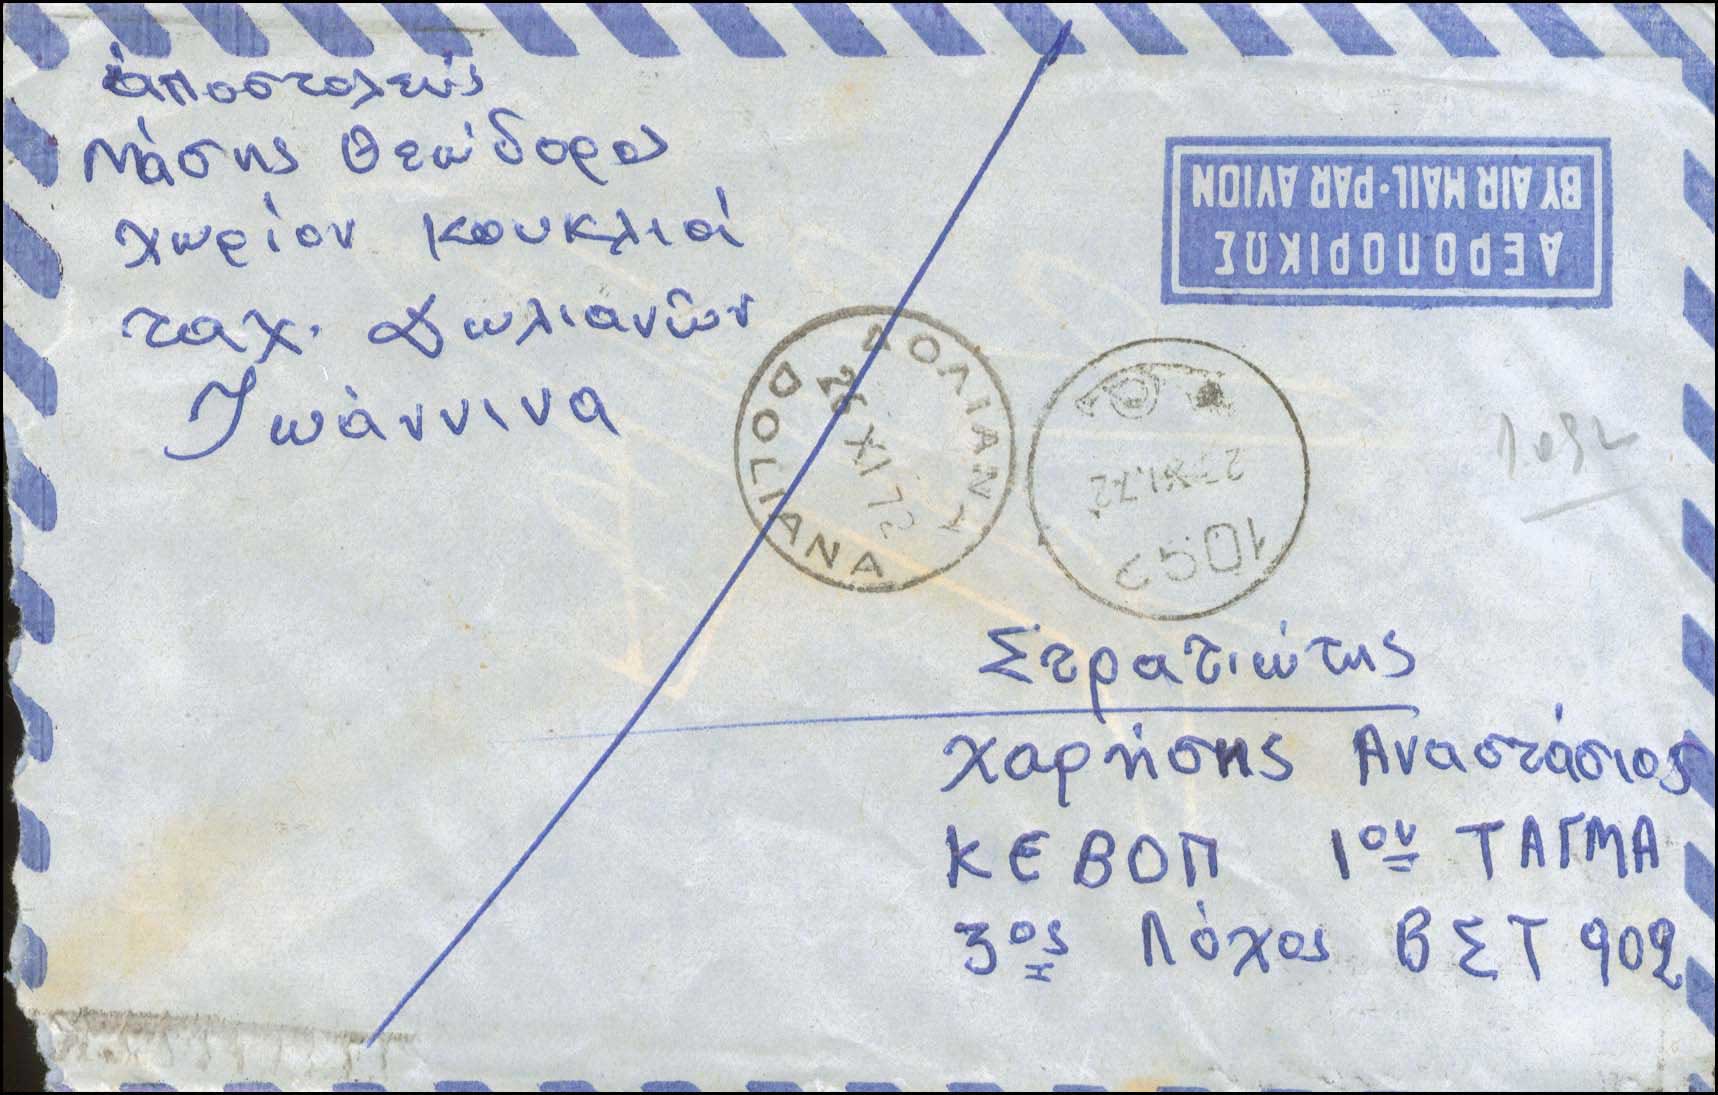 ἀποστολεύς
Νάσης Θεώδορος
χωρίον Κουκλιοί
ταχ. Δωλιανῶν
Ἰωάννινα
ΑΕΡΟΠΟΡΙΚΩΣ
BY AIR MAIL·PAR AVION
ΔΟΛΙΑΝΑ
26 XI 72
DOLIANA
XI.72
Στρατιώτης
Χαρήσης Αναστάσιος
ΚΕΒΟΠ 1ον ΤΑΓΜΑ
3ος Λόχος ΒΣΤ 902